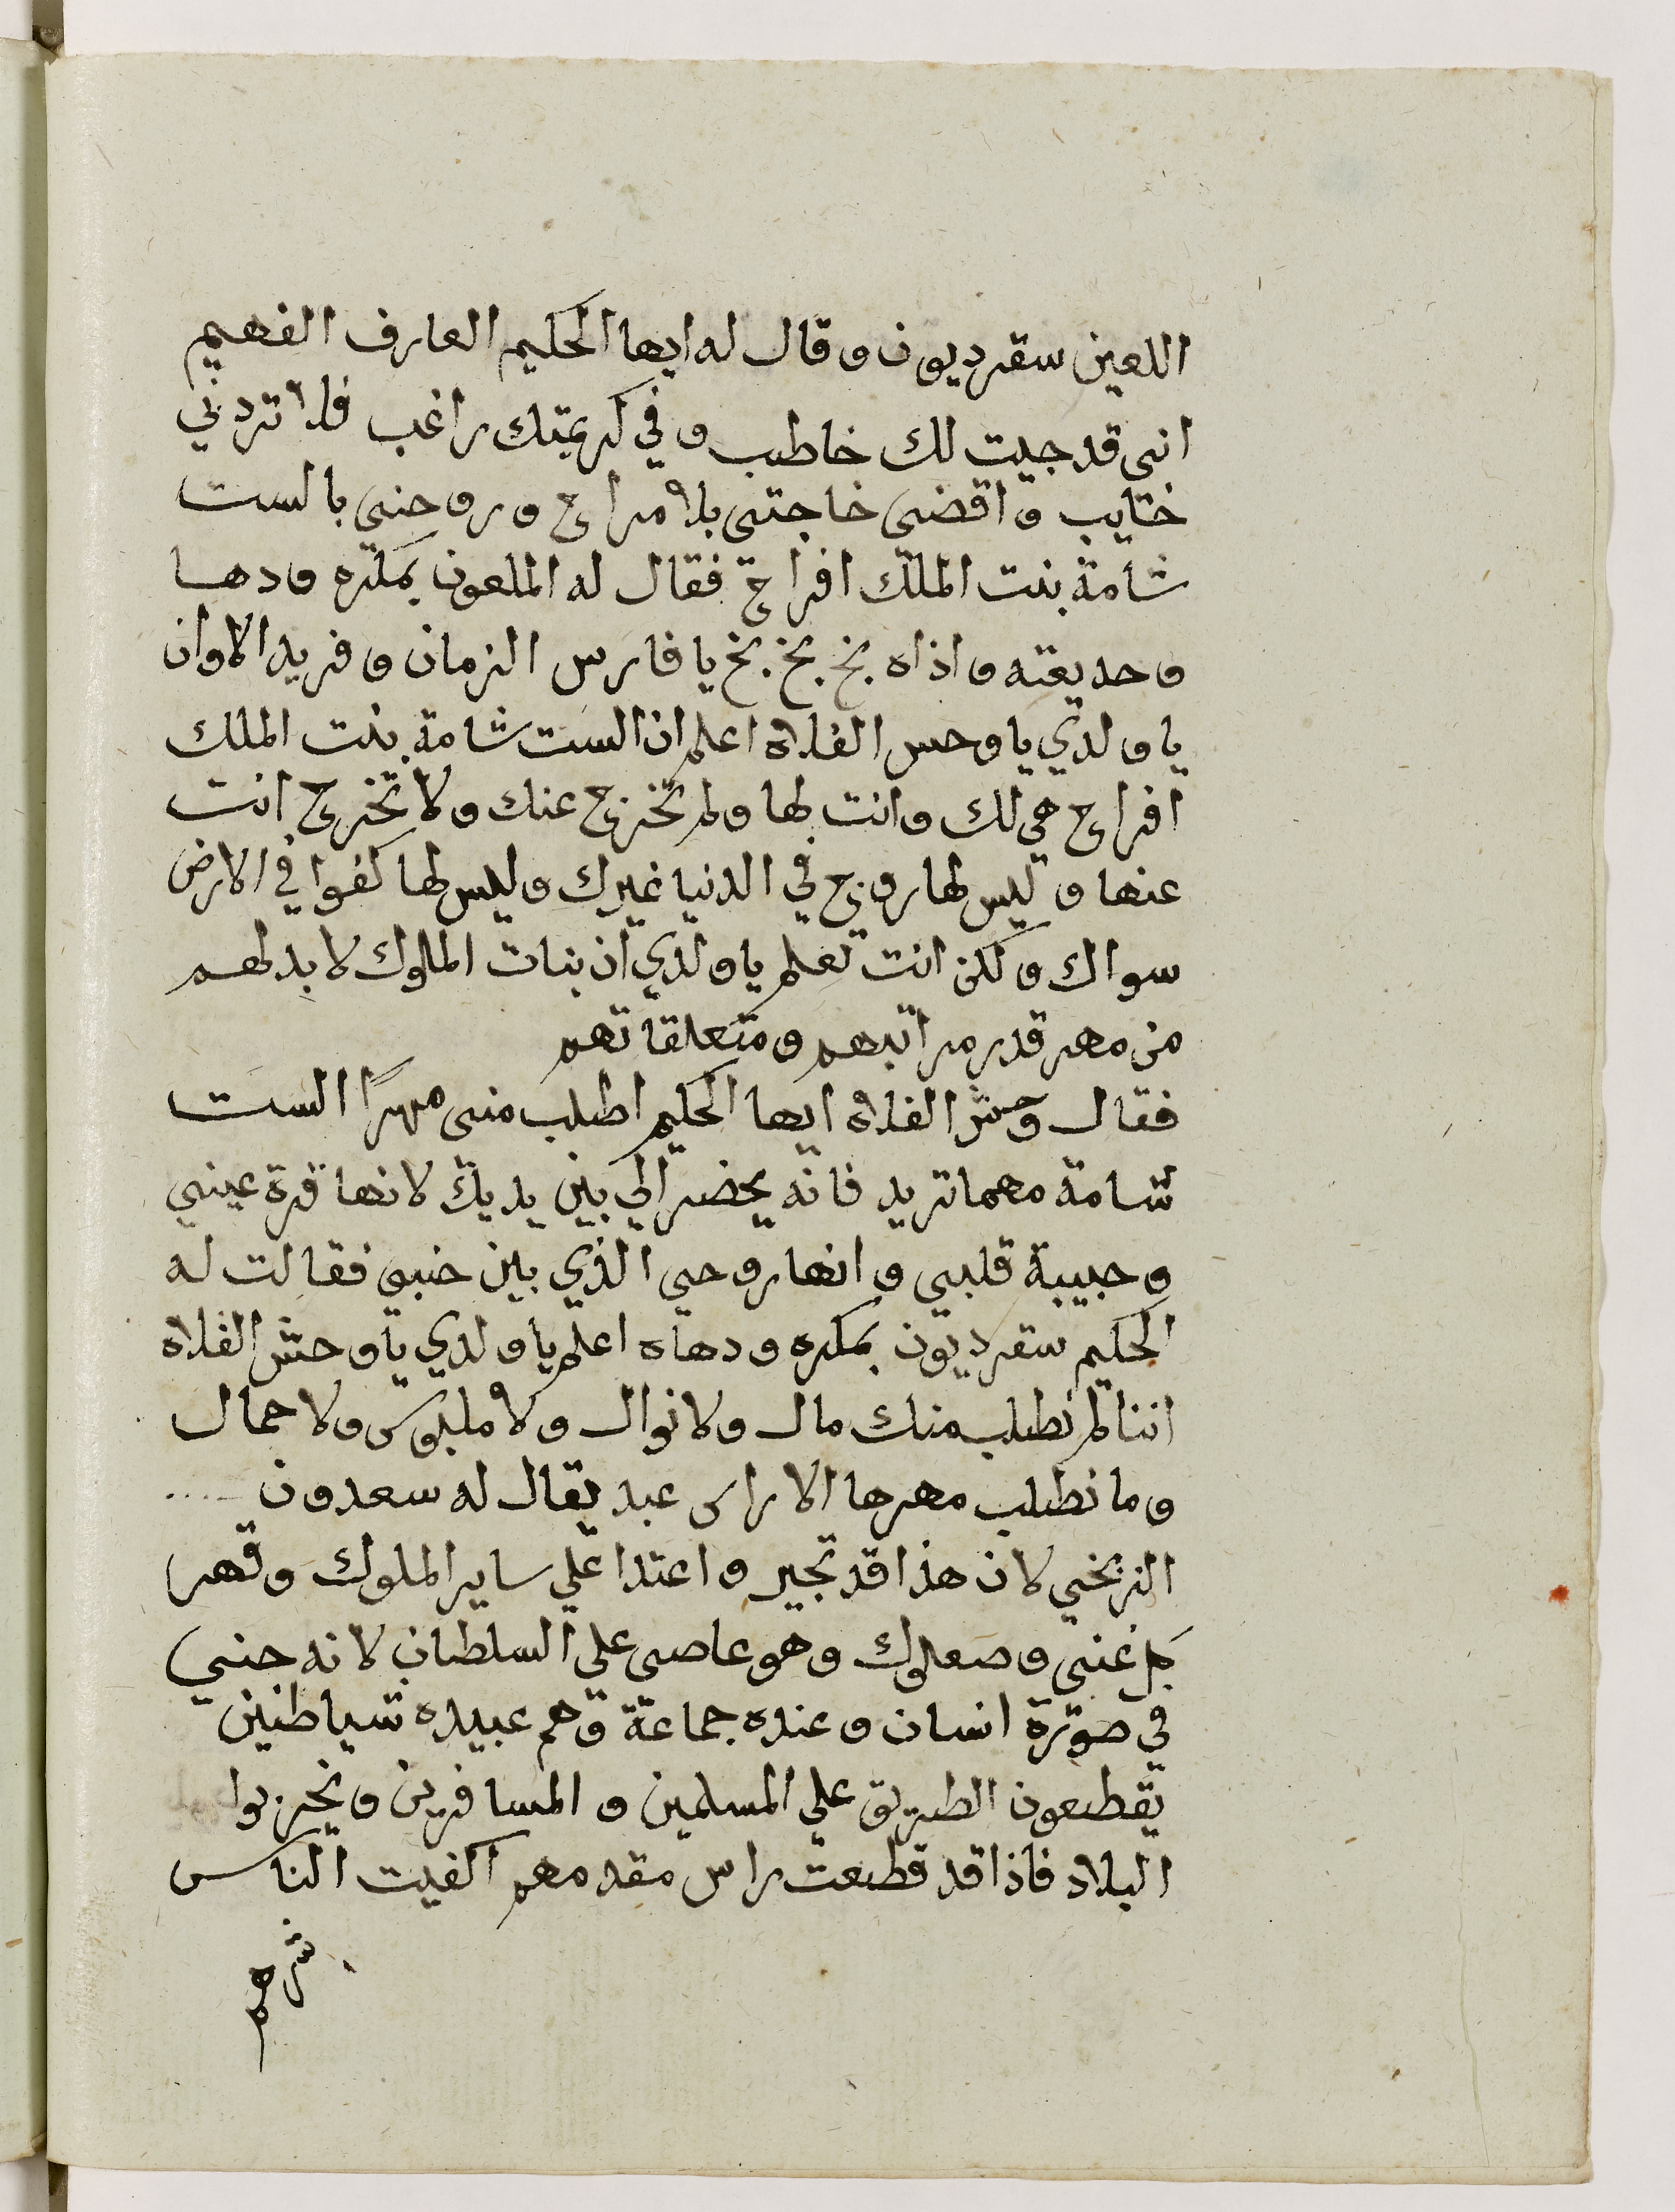 اللعين سقرديون وقال له ايها الحكيم العارف الفهيم
انى قد جيت لك خاطب وفي كريمتك راغب فلا تردني
خايب واقضى حاجتى بلا مراح وزوجنى بالست
شامة بنت الملك افراح فقال له الملعون بمكره ودها
وخديعته واذاه بخ بخ بخ يا فارس الزمان وفريد الاوان
يا ولدي يا وحس الفلاه اعلم ان الست شامة بنت الملك
افراح هي لك وانت لها ولم تخرج عنك ولا تخرج انت
عنها وليس لها زوج في الدنيا غيرك وليس لها كفوا في الارض
سواك ولكن انت تعلم يا ولدي ان بنات الملوك لا بد لهم
من مهر قدر مراتبهم ومتعلقاتهم
فقال وحش الفلاه ايها الحكيم اطلب منى مهرًا الست
شامة مهما تريد فانه يحضر الي بين يديك لانها قرة عينى
وحبيبة قلبى وانها روحى الذي بين جنبى فقالت له
الحكيم سقرديون بمكره ودهاه اعلم يا ولدي يا وحش الفلاه
اننا لم نطلب منك مال ولا نوال ولا ملبوس ولا جمال
وما نطلب مهرها الا راس عبد يقال له سعدون
الزنجي لان هذا قد تجبر واعتدا علي ساير الملوك وقهر
كل غنى وصعلوك وهو عاصى علي السلطان لانه جنى
في صورة انسان وعنده جماعة وهم عبيده شياطين
يقطعون الطريق علي المسلمين والمسافرين ويخربوا
البلاد فاذا قد قطعت راس مقدمهم اكفيت الناس
شرهم